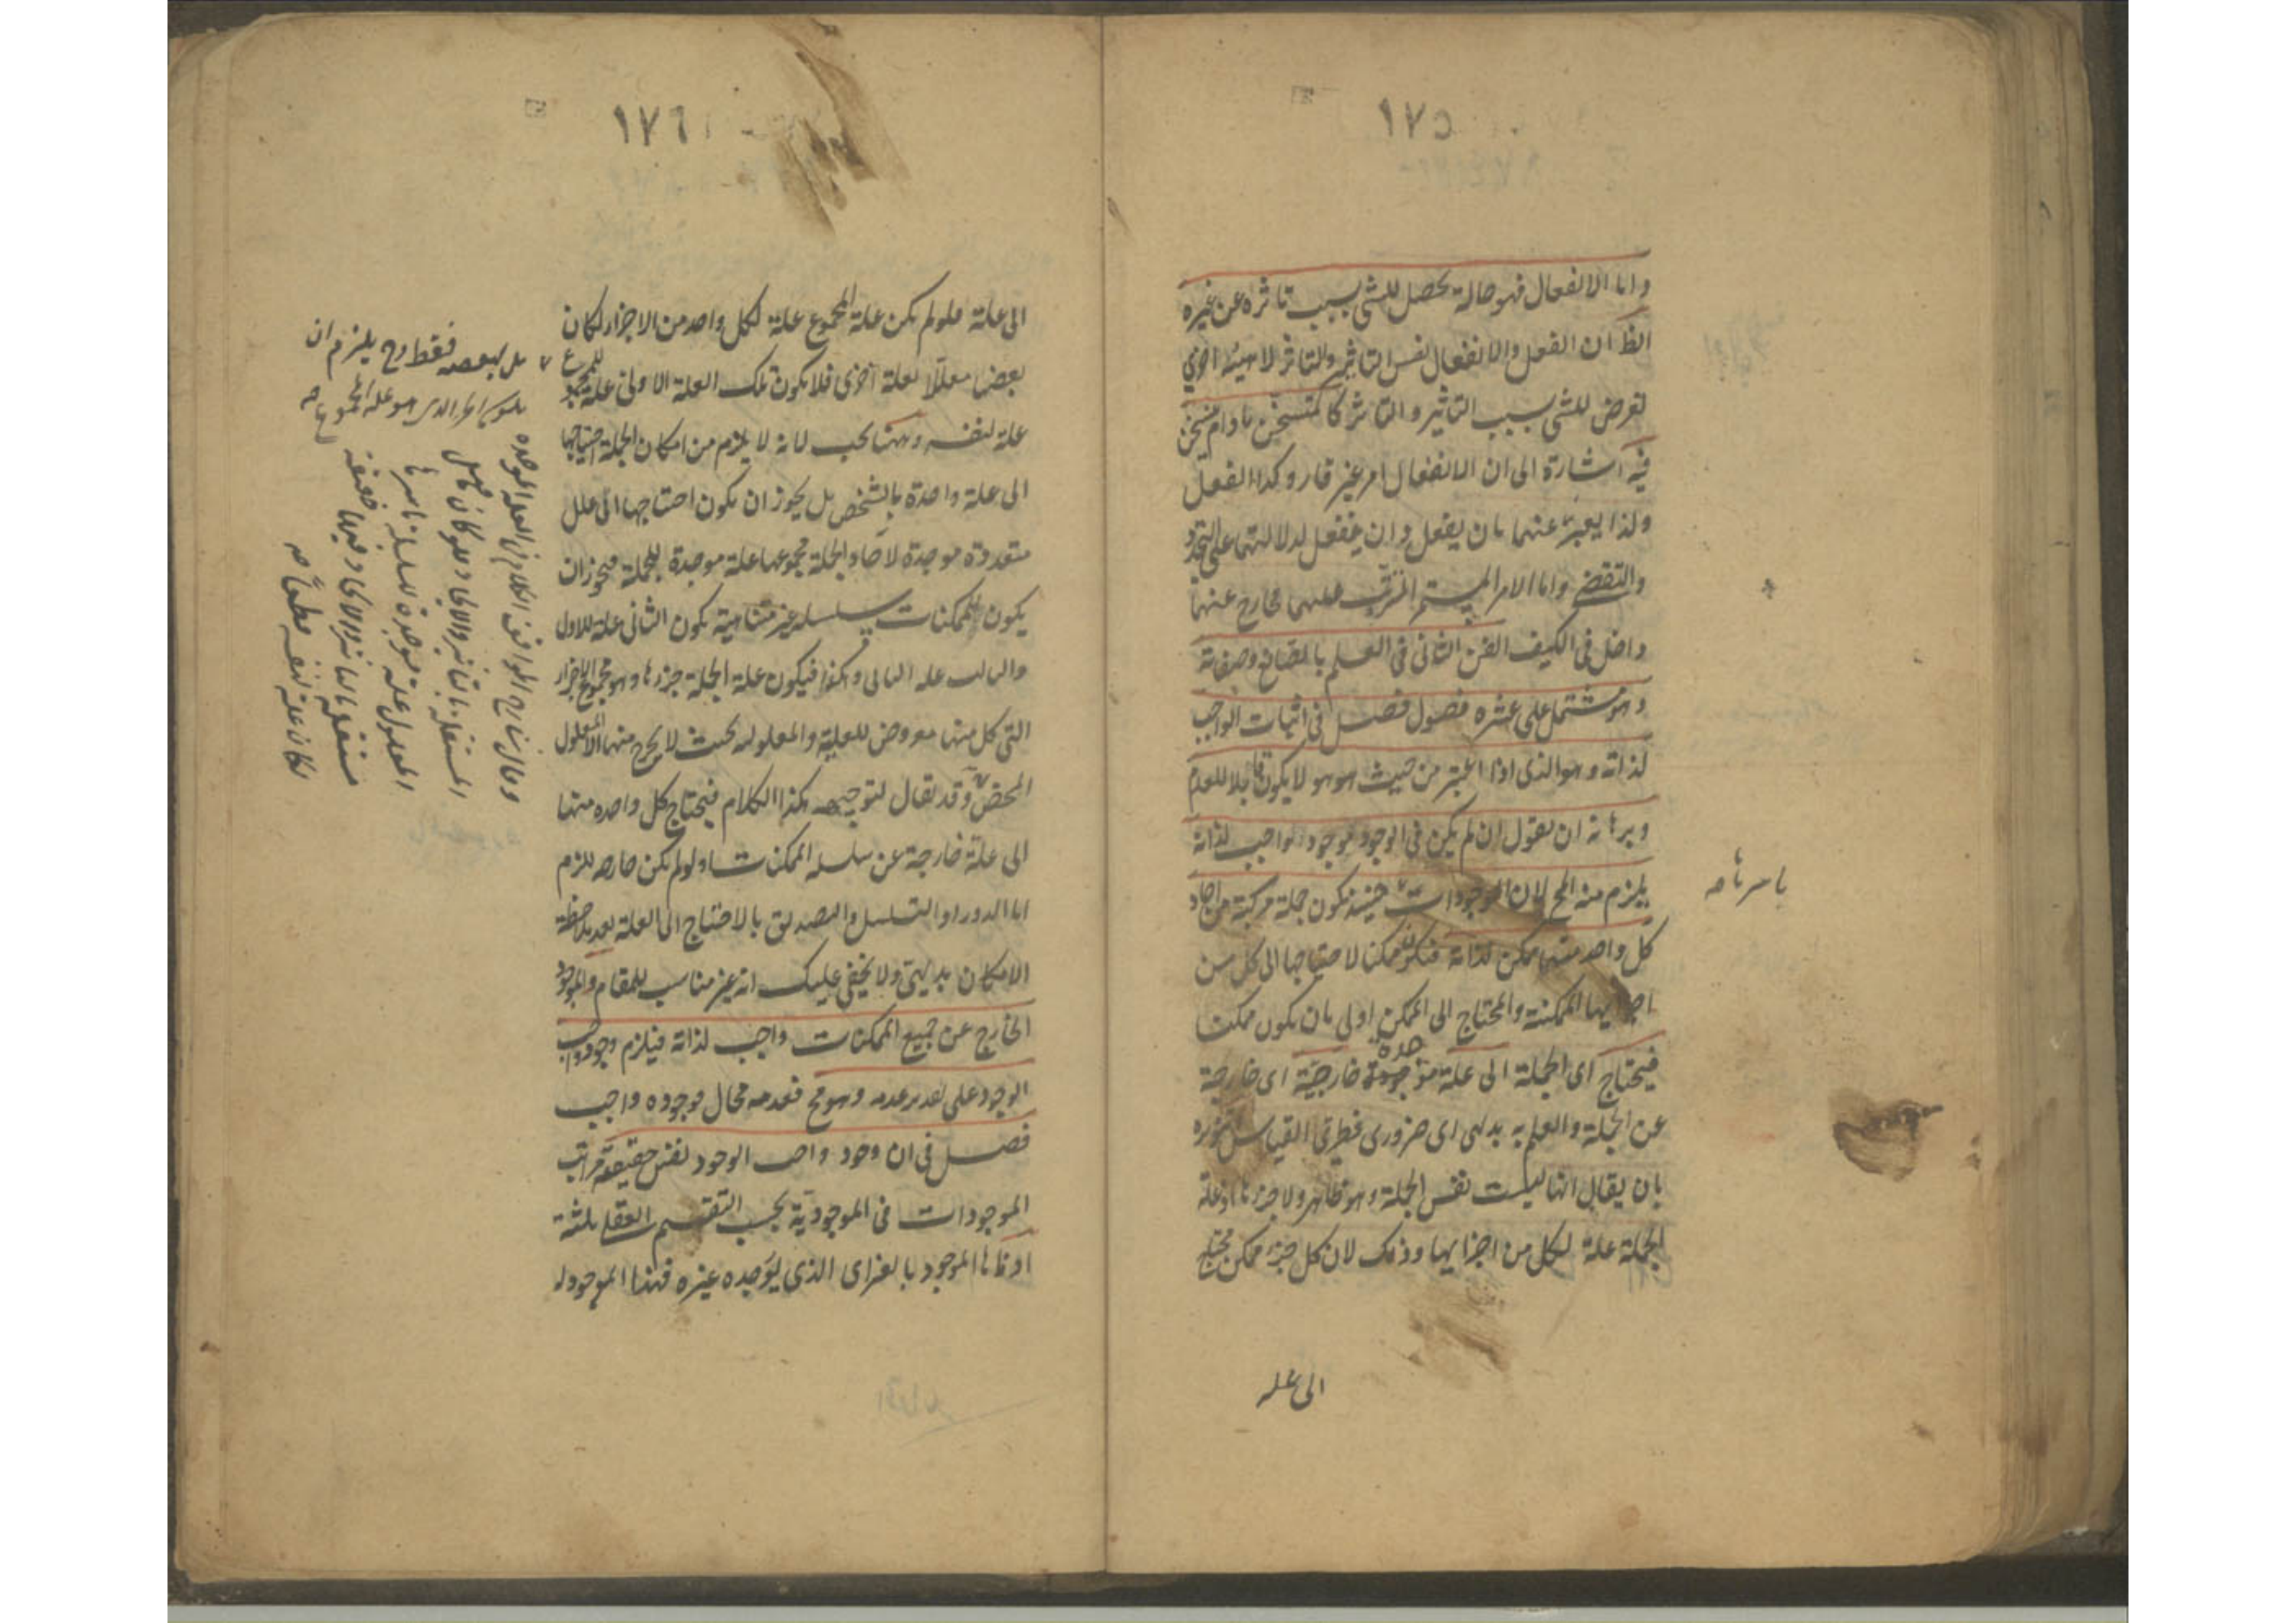 ١٧٥
واما الانفعال فهو حالة تحصل للشئ بسبب تاثره عن غيره
الظ ان الفعل والانفعال نفس التاثير والتاثر لا هيئة اخرى
تعرض للشئ بسبب التاثير والتاثر كالمتسخن ما دام يتسخن
فيه اشارة الى ان الانفعال امر غير قار وكذا الفعل
ولذا يعبر عنهما بان يفعل وان ينفعل لدلالتهما على التجدد
والتقضى واما الامر المستمر المترتب عليهما فخارج عنهما
داخل فى الكيف الفن الثانى فى العلم بالصانع وصفاته
وهو مشتمل على عشرة فصول فصل فى اثبات الواجب
لذاته وهو الذى اذا اعتبر من حيث هو هو لا يكون قابلا للعدم
وبرهانه ان نقول ان لم يكن فى الوجود موجود واجب لذاته
يلزم منه المح لان الموجودات حينئذ تكون جملة مركبة من احاد
باسرها صه
كل واحد منها ممكن لذاته فتكون ممكنا لاحتياجها الى كل من
اجزايها الممكنة والمحتاج الى الممكن اولى بان يكون ممكنا
فيحتاج اى الجملة الى علة موجدة خارجية اى خارجة
عن الجملة والعلم به بديهى اى ضرورى فطرى القياس تقريره
بان يقال انها ليست نفس الجملة وهو ظاهر ولا جزءها اذ علة
الجملة علة لكل من اجزايها وذلك لان كل جزء ممكن محتاج
الى عله
١٧٦
الى علة فلو لم يكن علة المجموع علة لكل واحد من الاجزاء لكان
بعضها معللا بعلة اخرى فلا يكون تلك العلة الاولى علة للمجموع
بل لبعضه فقط وح يلزم ان
يكون الجزء الذى هو علة المجموع صه
علة لنفسه وههنا بحث لانه لا يلزم من امكان الجملة احتياجها
الى علة واحدة بالشخص بل يجوز ان يكون احتياجها الى علل
متعددة موجدة لاحاد الجملة مجموعها علة موجدة للجملة فيجوز ان
يكون الممكنات سلسلة غير متناهية يكون الثانى علة للاول
والثالث علة الثانى وهكذا فيكون علة الجملة جزءها وهو مجموع الاجزاء
التى كل منها معروض للعلية والمعلولية بحيث لا يخرج منها الا المعلول
المحض وقد يقال لتوجيه هذا الكلام فيحتاج كل واحدة منها
الى علة خارجة عن سلسلة الممكنات اذ لو لم يكن خارجة للزم
اما الدور او التسلسل والتصديق بالاحتياج الى العلة بعد ملاحظة
الامكان بديهى ولا يخفى عليك انه غير مناسب للمقام والموجود
الخارج عن جميع الممكنات واجب لذاته فيلزم وجود واجب
الوجود على تقدير عدمه وهو مح فعدمه محال فوجوده واجب
فصل فى ان وجود واجب الوجود نفس حقيقته مراتب
الموجودات فى الموجودية بحسب التقسيم العقلى ثلثة
ادناها الموجود بالغير اى الذى يوجده غيره فهذا الموجود له
وقال شارح المواقف الكلام فى العلة الموجدة
المستقلة بالتاثير والايجاد فلو كان ما قبل
المعلول علة موجدة للسلسلة باسرها
مستقلة بالتاثير والايجاد فيها حقيقة
لكان علة لنفسه قطعا صه